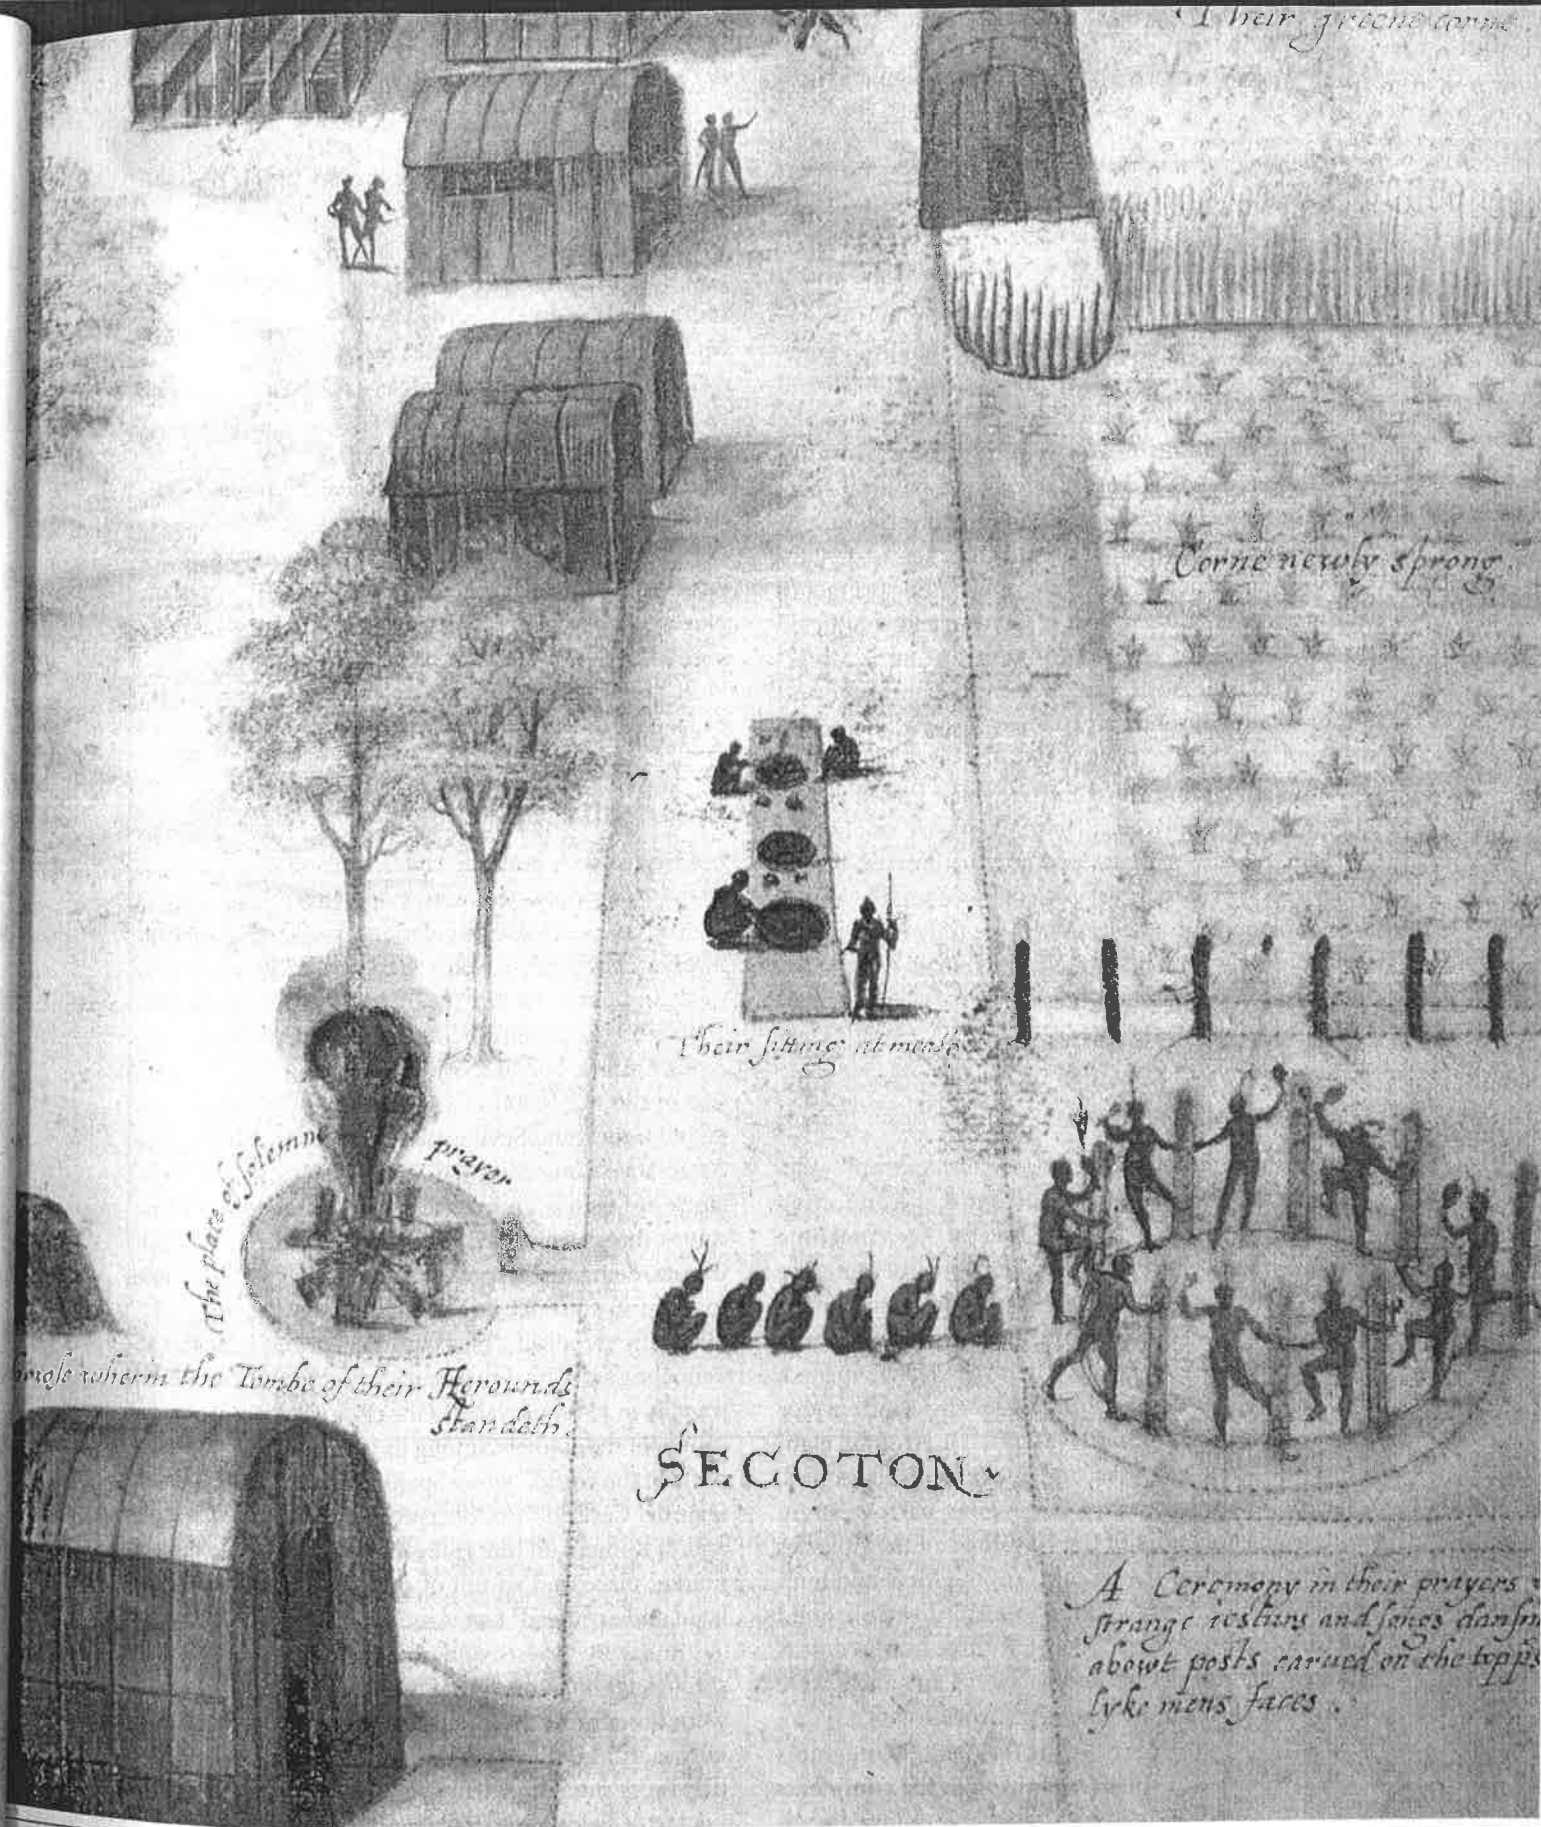 Their greene corne.
Corne newly sprong.
Their sitting at meate
The place of solemne prayer
wherin the Tombe of their Herounds
standeth.
SECOTON
A Ceremony in their prayers
strange iesturs and songs dansin
abowt posts carued on the topps
lyke mens faces.